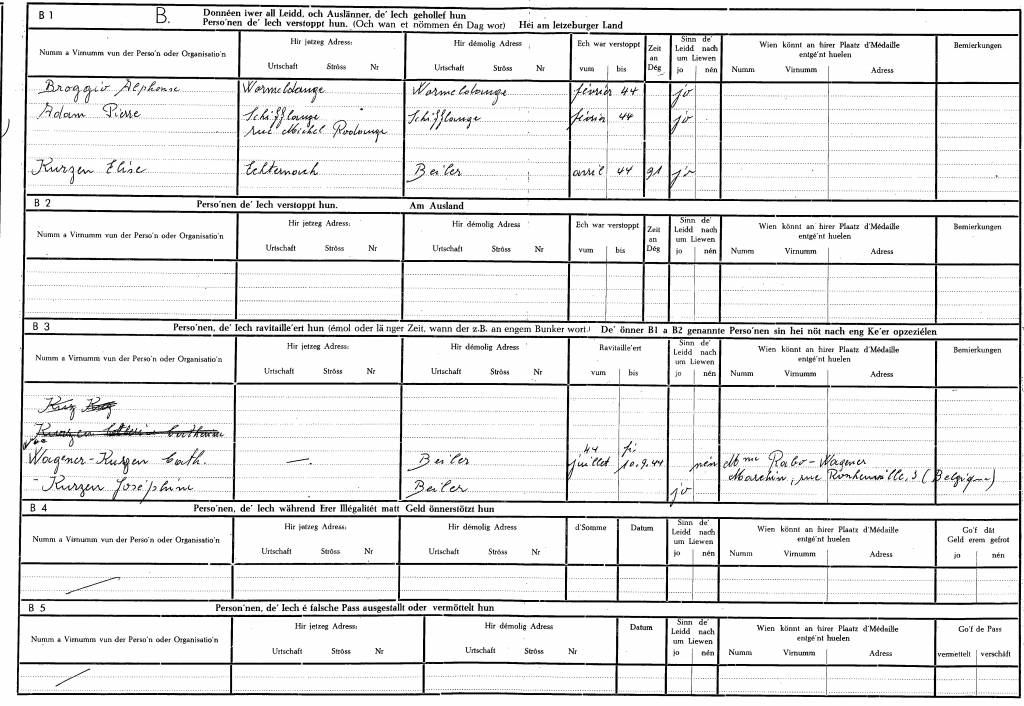 B 1 B. Donnéen iwer all Leidd, och Auslänner, de' Iech gehollef hun
Perso'nen de' Iech verstoppt hun. (Och wan et nömmen én Dag wor) Hei am letzeburger Land
Numm a Virnumm vun der Perso'n oder Organisatio'n
Hir jetzeg Adress:
Urtschaft Ströss Nr
Hir démolig Adress
Urtschaft Ströss Nr
Ech war verstoppt
vum bis
Zeit
an
Dég
Sinn de'
Leidd nach
um Liewen
jo nén
Wien könnt an hirer Plaatz d'Médaille
entgé'nt huelen
Numm Virnumm Adress
Bemierkungen
Broggio Alphonse Wormeldange Wormeldange février 44 jo
Adam Pierre Schifflange Schifflange février 44 jo
rue Michel Rodange
Kurzen Elise Echternach Beiler avril 44 jo
B 2 Perso'nen de' Iech verstoppt hun. Am Ausland
Numm a Virnumm vun der Perso'n oder Organisatio'n
Hir jetzeg Adress:
Urtschaft Ströss Nr
Hir démolig Adress
Urtschaft Ströss Nr
Ech war verstoppt
vum bis
Zeit
an
Dég
Sinn de'
Leidd nach
um Liewen
jo nén
Wien könnt an hirer Plaatz d'Médaille
entgé'nt huelen
Numm Virnumm Adress
Bemierkungen
B 3 Perso'nen, de' Iech ravitaille'ert hun (émol oder länger Zeit, wann der z.B. an engem Bunker wort.) De' önner B1 a B2 genannte Perso'nen sin hei nöt nach eng Ke'er opzeziélen
Numm a Virnumm vun der Perso'n oder Organisatio'n
Hir jetzeg Adress:
Urtschaft Ströss Nr
Hir démolig Adress
Urtschaft Ströss Nr
Ravitaille'ert
vum bis
Sinn de'
Leidd nach
um Liewen
jo nén
Wien könnt an hirer Plaatz d'Médaille
entgé'nt huelen
Numm Virnumm Adress
Bemierkungen
Kurzen
44
Wagener-Kurzen Cath. —. Beiler juillet 10.9.44 nén Rabo-Wagener
Marchin, rue 3 (Belgique)
- Kurzen Joséphine Beiler jo
B 4 Perso'nen, de' Iech während Erer Illégalitét matt Geld önnerstötzt hun
Numm a Virnumm vun der Perso'n oder Organisatio'n
Hir jetzeg Adress:
Urtschaft Ströss Nr
Hir démolig Adress
Urtschaft Ströss Nr
d'Somme
Datum
Sinn de'
Leidd nach
um Liewen
jo nén
Wien könnt an hirer Plaatz d'Médaille
entgé'nt huelen
Numm Virnumm Adress
Go'f dât
Geld erem gefrot
jo nén
B 5 Person'nen, de' Iech é falsche Pass ausgestallt oder vermöttelt hun
Numm a Virnumm vun der Perso'n oder Organisatio'n
Hir jetzeg Adress:
Urtschaft Ströss Nr
Hir démolig Adress
Urtschaft Ströss Nr
Datum
Sinn de'
Leidd nach
um Liewen
jo nén
Wien könnt an hirer Plaatz d'Médaille
entgé'nt huelen
Numm Virnumm Adress
Go'f de Pass
vermettelt verschâft